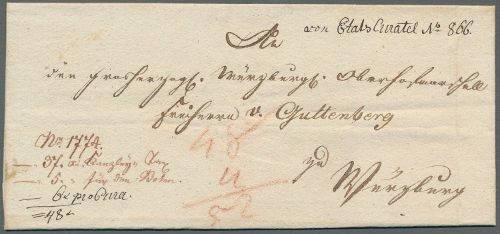 von Etats Curatel No 866.
An
den grosherzogl. Würzburgl. Oberhofmarschall
Freiherrn v. Guttenberg
zu
Würzburg
No. 1774.
37. x. Kanzley Tax
5. " für den Boten.
6 x pro Cura.
= 48 x
48
4
52